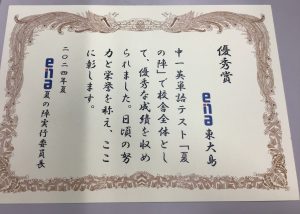 優秀賞
ena東大島
中一英単語テスト「夏
の陣」で校舎全体とし
て、優秀な成績を収め
られました。日頃の努
力と栄誉を称え、ここ
に彰します。
二〇二四年夏
ena夏の陣実行委員長